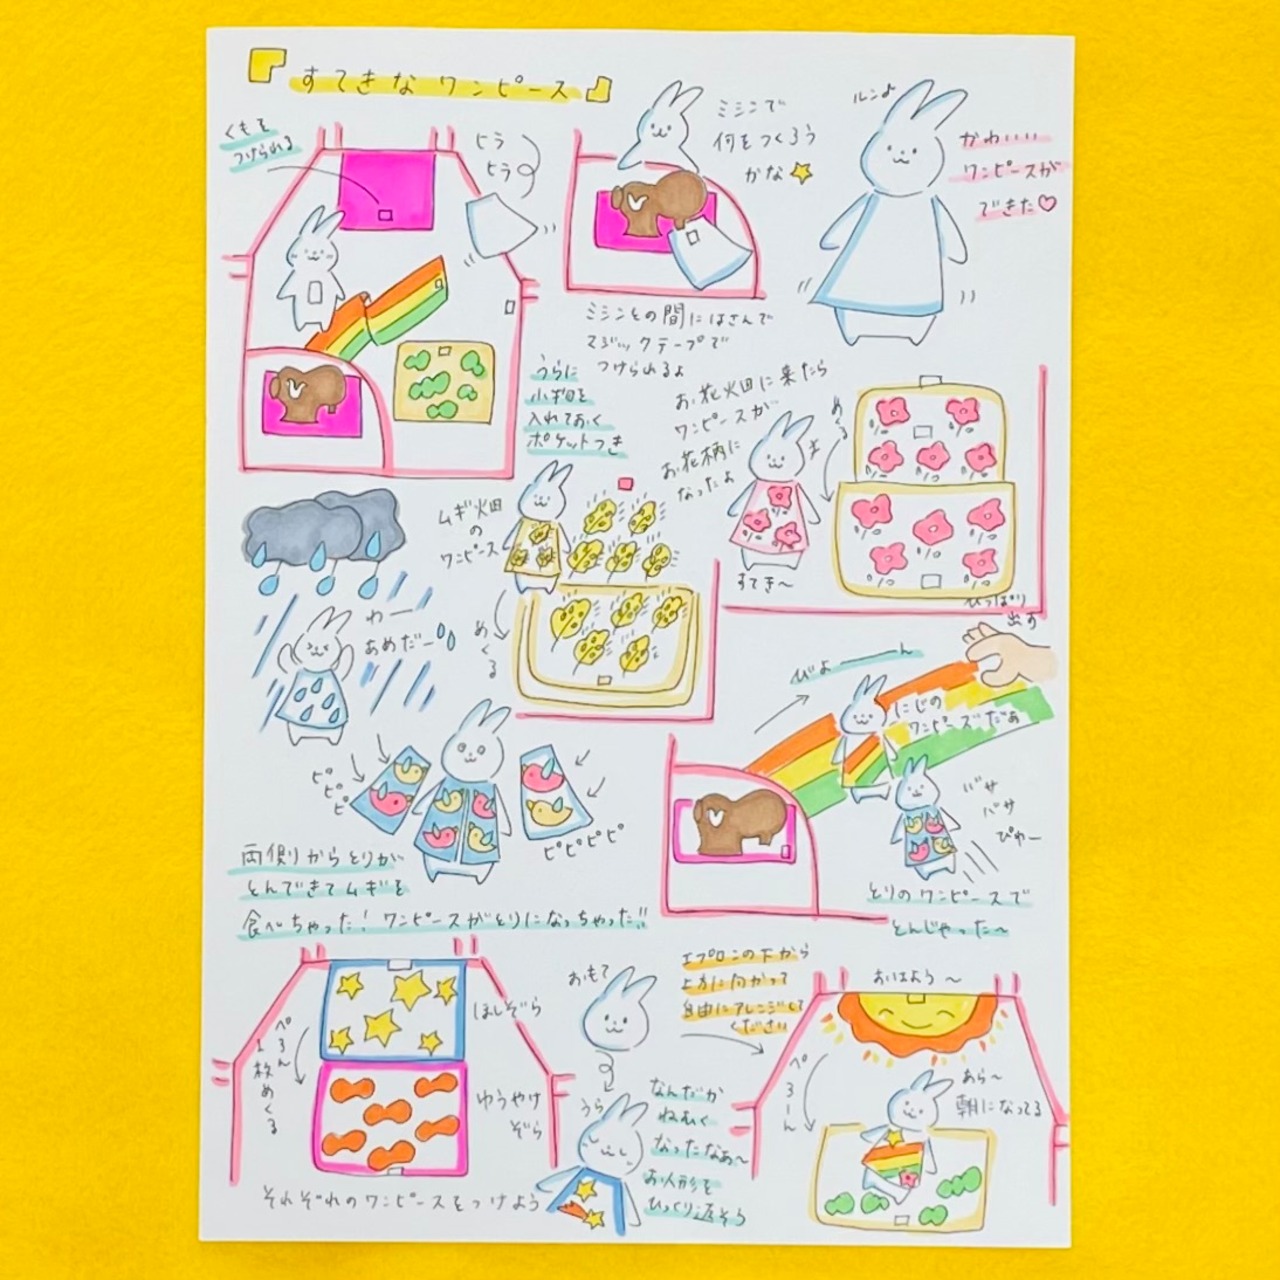 すてきなワンピース
くもを
つけられる
ヒラ
ヒラ
ミシンで
何をつくろう
かな
ルン♪
かわいい
ワンピースが
できた♡
ミシンとの間にはさんで
マジックテープで
つけられるよ
うらに
小物を
入れておく
ポケットつき
お花畑に来たら
ワンピースが
お花柄に
なったよ
めくる
すてき〜
ムギ畑
の
ワンピース
めくる
わー
あめだー
ひっぱり
出す
びよーーん
にじの
ワンピースだぁ
ピピピ
ピピピピ
バサ
バサ
ぴゅー
両側からとりが
とんできてムギを
食べちゃった!ワンピースがとりになっちゃった!!
とりのワンピースで
とんじゃった〜
ほしぞら
ぺろん
1枚めくる
ゆうやけ
ぞら
それぞれのワンピースをつけよう
おもて
うら
エプロンの下から
上方に向かって
自由にアレンジして
ください
なんだか
ねむく
なったなぁ〜
お人形を
ひっくり返そう
おはよう〜
ぺろーん
あら〜
朝になってる